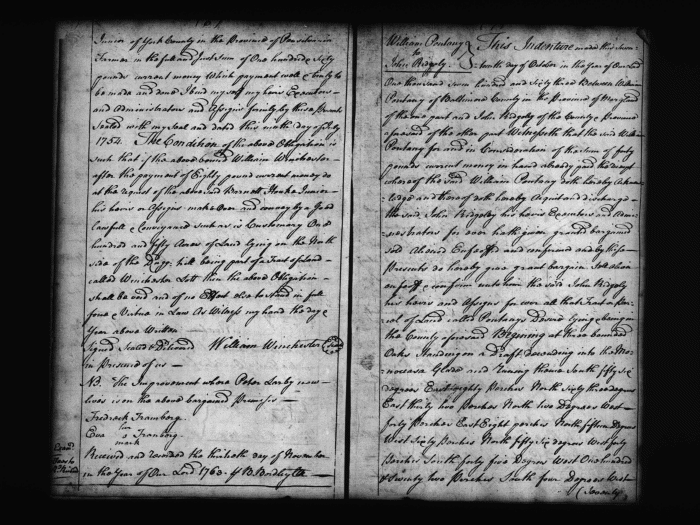 Junior of York County in the Province of Pensilvania
Farmer in the full and Just sum of One hundred & Sixty
pounds current money Which payment well & truly to
be made and done I bind my self my heirs Executors
and Administrators and Assigns firmly by these Presents
Sealed with my seal and dated this ninth day of July
1754. The Condition of the above Obligation is
such that if the above bound William Winchester
after the payment of Eighty pound current money do
at the request of the above said Junior
his heirs or Assigns make Over and convey by a Good
Lawfull Conveyance such as is Customary One
hundred and fifty Acres of Land lying on the North
side of the hill being part of a Tract of Land
called Winchester Lott then the above Obligation
shall be void and of no Effect else to stand in full
force & Virtue in Law As Witness my hand the day &
Year above Written
Signed Sealed & Delivered William Winchester (Seal)
in Presence of us
NB. The Improvement where Peter now
lives is on the above bargained Premises
Fredrick Framborg
Eva her mark Framborg
Received and recorded the thirtieth day of November
in the Year of Our Lord 1763.
William Pontany
to
John Ridgely
This Indenture made this
day of October in the Year of Our Lord
One thousand seven hundred and Sixty three Between William
Pontany of Baltimore County in the Province of Maryland
of the one part and John Ridgely of the County & Province
aforesaid of the other part Witnesseth that the said William
Pontany for and in Consideration of the Sum of forty
pounds current money in hand already paid the receipt
whereof the said William Pontany doth hereby
and thereof doth hereby Acquit and discharge
the said John Ridgely his heirs Executors and
for ever hath given granted bargained
Sold Aliened Enfeoffed and confirmed and by these
Presents do hereby give grant bargain Sell alien
enfeoff & confirm unto him the said John Ridgely
his heirs and Assigns for ever all that Tract or
of Land called Pontany lying & being in
the County aforesaid Begining at three bounded
Oaks Standing on a Draft descending into the
Glade and Runing thence South fifty six
degrees East eighty Perches North Sixty three degrees
East thirty two perches North two Degrees West
forty Perches East Eight perches North fifteen Degrees
West Sixty Perches North fifty Six degrees West forty
Perches South forty five Degrees West One hundred
& Twenty two Perches South four Degrees West
(Seventy